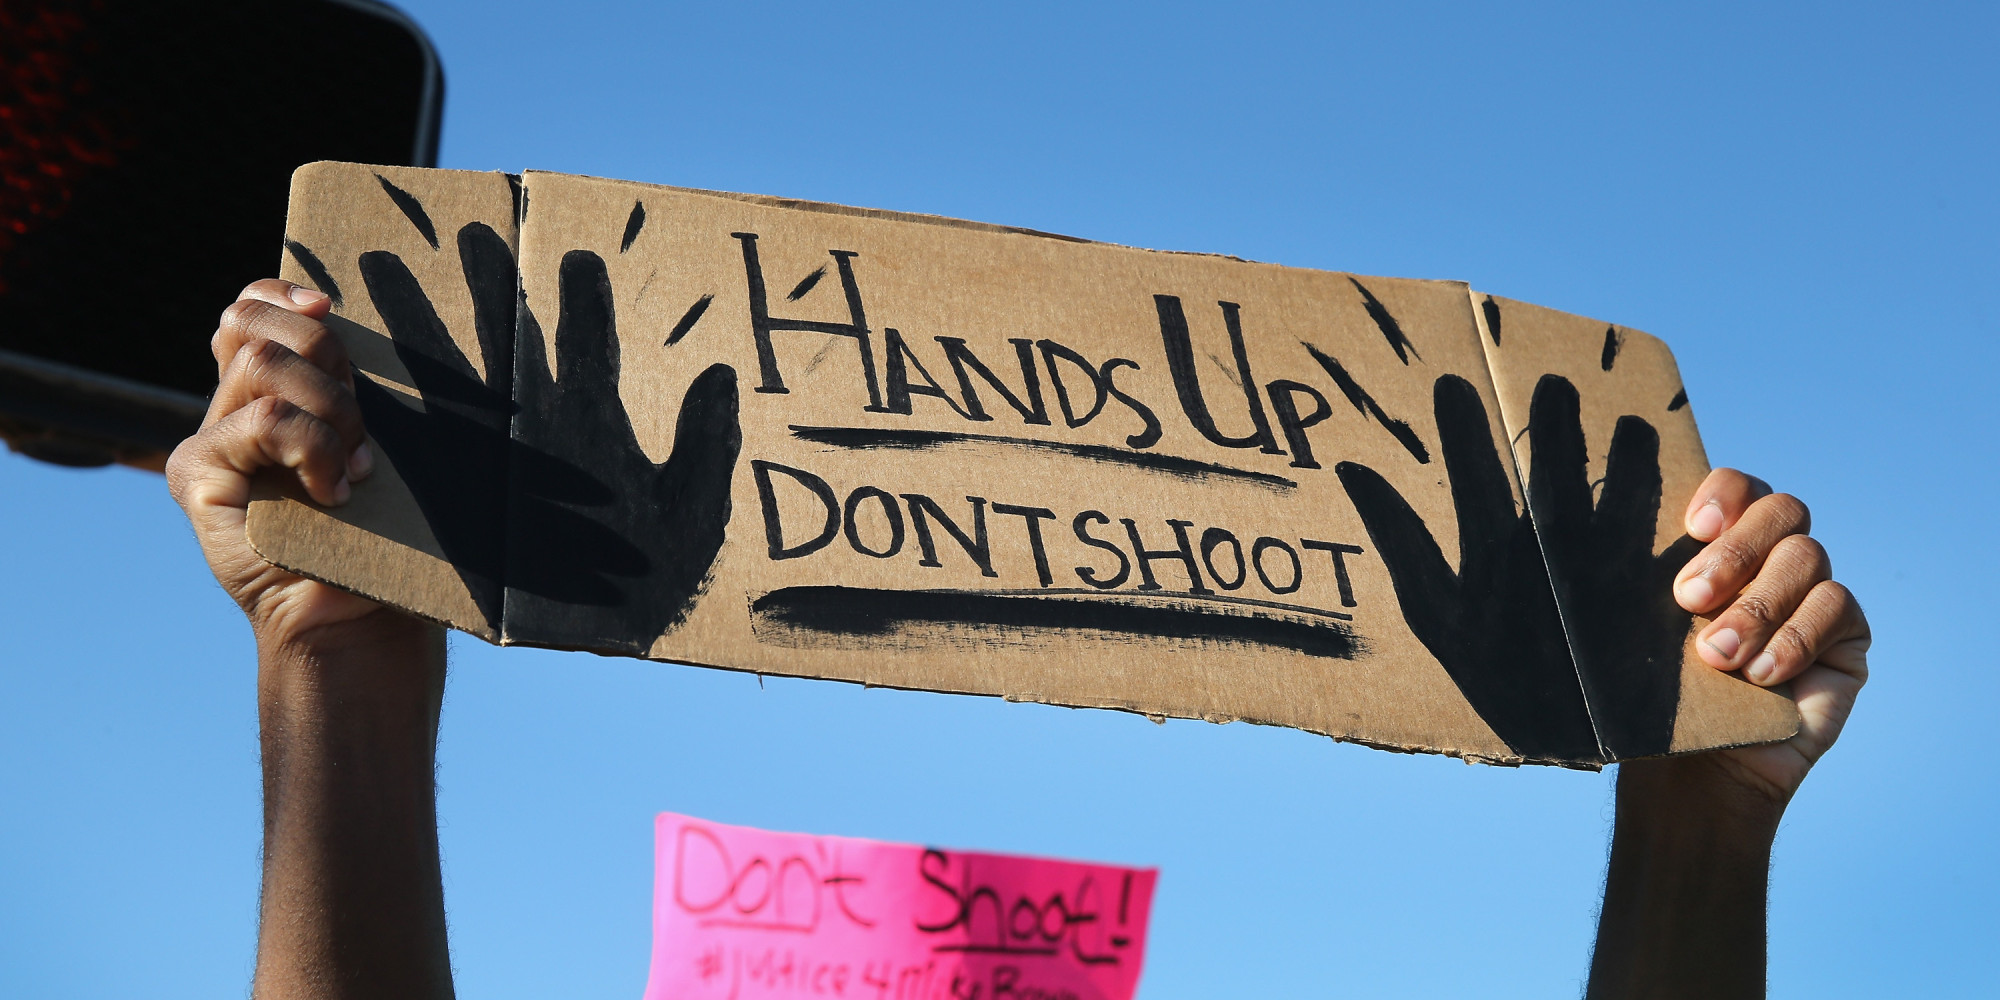 HANDS UP
DONT SHOOT
Don't Shoot!
#justice4Mike Brown